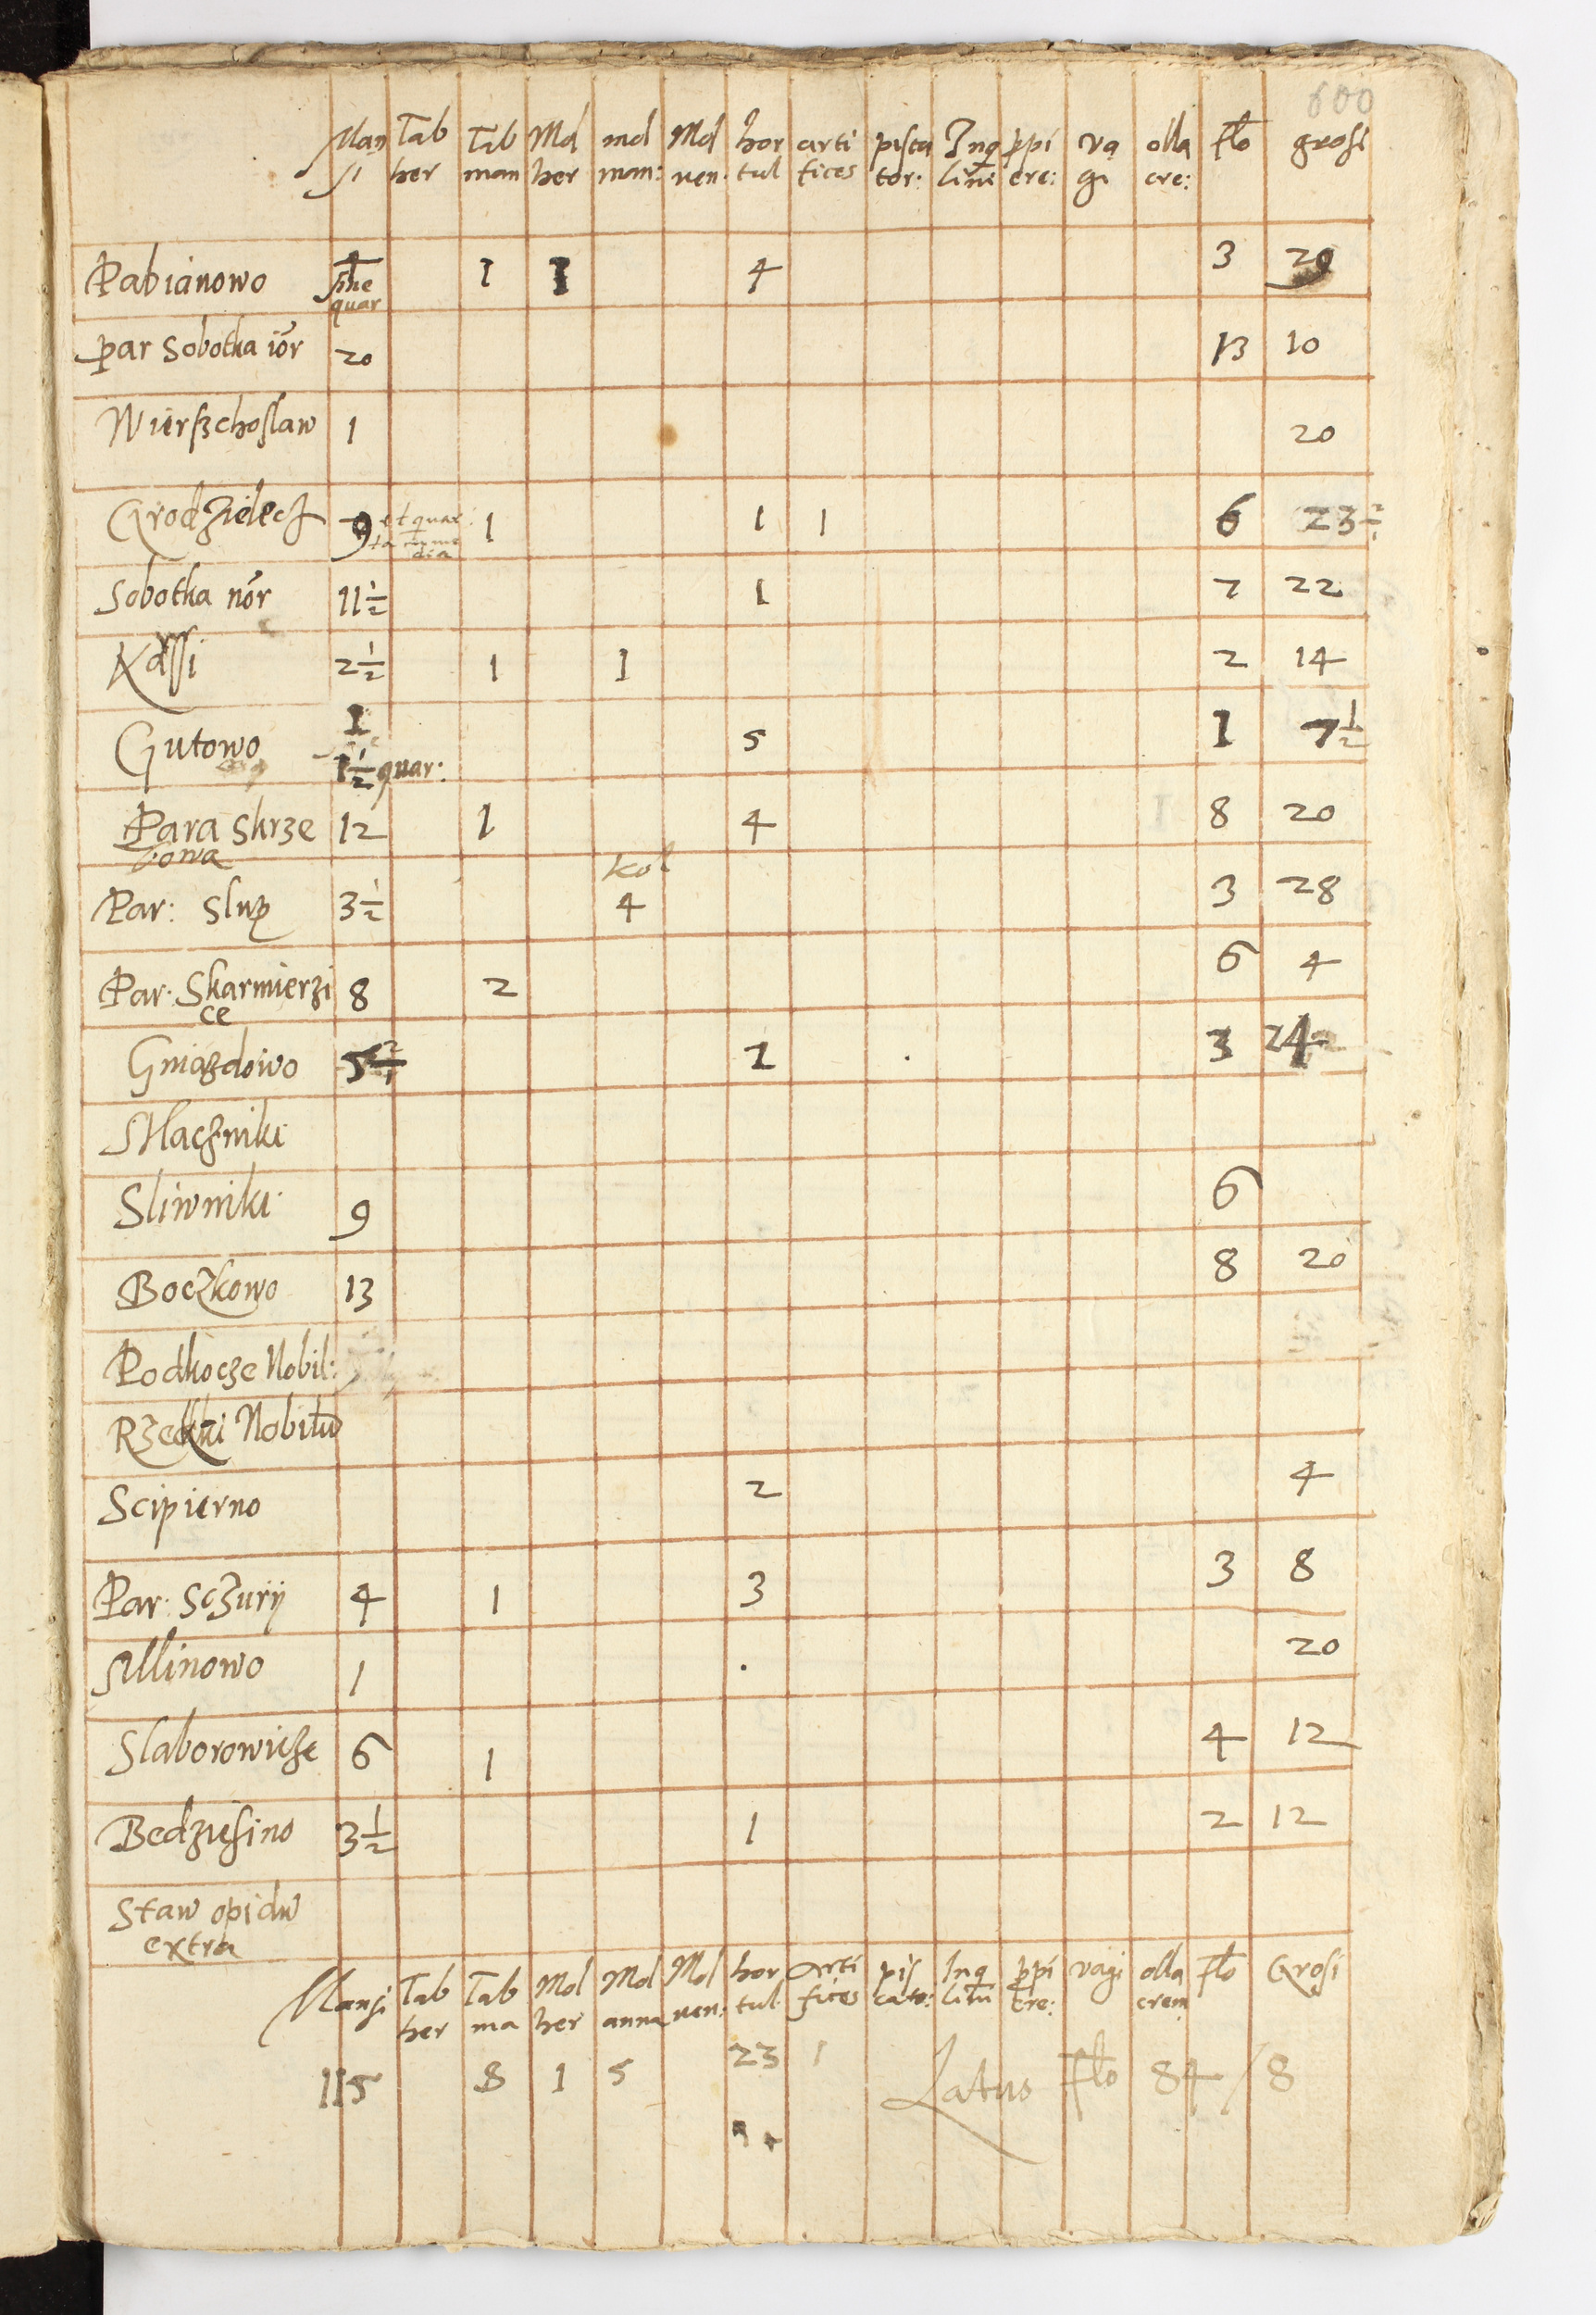 600
Man Tab Tab Mol mol Mol hor arti pisca Inq ppi va olla flo grosi
si her man her man: ven: tul fices tor: lini ere: gi cre:
Pabianowo 4 1 1 4 3 20
sine
quar
par sobotka ior 20 13 10
Wierszchoslaw 1 20
Grodzielecz 9 et quar 1 1 1 6 23 ½
ta
dia
Sobotka nor 11 ½ 1 7 22
Kassi 2 ½ 1 1 2 14
Gutowo 1 5 1 7 ½
1 ½ quar:
Para Skrze 12 1 4 8 20
bowa
kol
Par: Slup 3 ½ 4 3 28
Par: Skarmierzi 8 2 6 4
ce
Gniazdowo 5 ½ 1 3 24
Maczniki
Sliwniki 9 6
Boczkowo 13 8 20
Podkocze Nobil:
Rzekki Nobiliu
Scipierno 2 4
Par: Sczurij 4 1 3 3 8
Mlinowo 1 20
Slaborowicze 6 1 4 12
Bedziesino 3 ½ 1 2 12
Staw opidu
extra
Mansi Tab Tab Mol Mol Mol hor Arti pis Inq ppi vagi olla flo Grosi
her ma her anna ven: tul fices cato: lini cre: crem
115 8 1 5 23 1 Latus flo 84 / 8